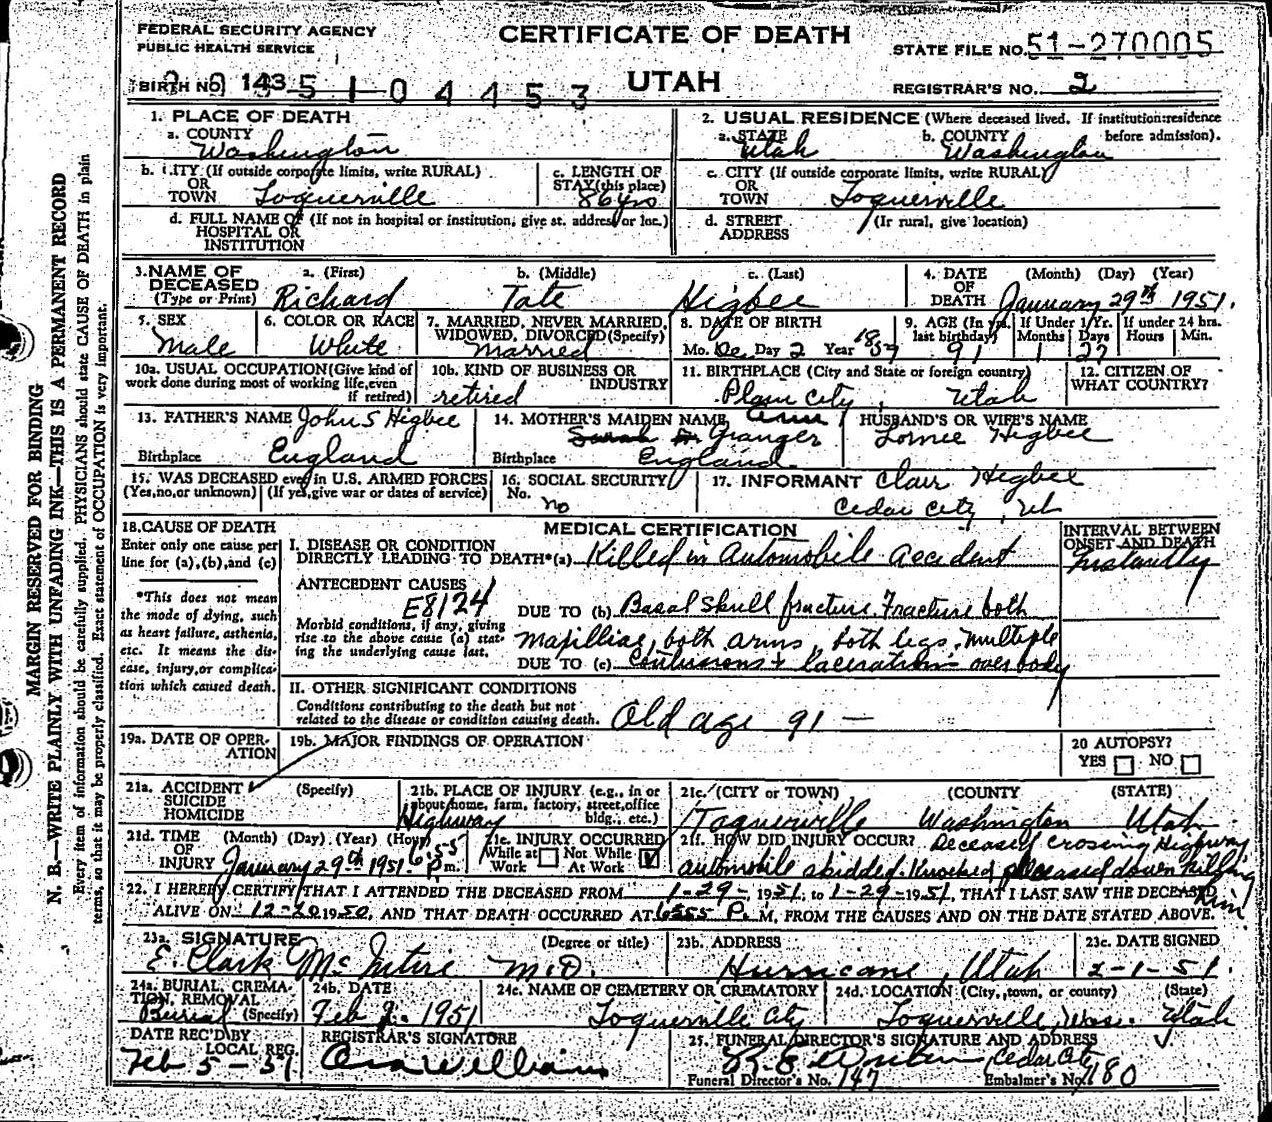 FEDERAL SECURITY AGENCY
PUBLIC HEALTH SERVICE
CERTIFICATE OF DEATH
UTAH
STATE FILE NO. 51-270005
REGISTRAR'S NO. 2
BIRTH NO. 143 5 1 0 4 4 5 3
MARGIN RESERVED FOR BINDING
N. B.—WRITE PLAINLY WITH UNFADING INK—THIS IS A PERMANENT RECORD
Every item of information should be carefully supplied. PHYSICIANS should state CAUSE OF DEATH in plain
terms, so that it may be properly classified. Exact statement of OCCUPATION is very important.
1. PLACE OF DEATH
a. COUNTY Washington
b. CITY (If outside corporate limits, write RURAL) OR TOWN Toquerville
c. LENGTH OF STAY (this place) 86 yrs
d. FULL NAME OF HOSPITAL OR INSTITUTION (If not in hospital or institution, give st. address or loc.)
2. USUAL RESIDENCE (Where deceased lived. If institution: residence before admission).
a. STATE Utah b. COUNTY Washington
c. CITY (If outside corporate limits, write RURAL) OR TOWN Toquerville
d. STREET ADDRESS (If rural, give location)
3. NAME OF DECEASED (Type or Print) a. (First) Richard b. (Middle) Tate c. (Last) Higbee
4. DATE OF DEATH (Month) (Day) (Year) January 29th 1951.
5. SEX Male
6. COLOR OR RACE White
7. MARRIED, NEVER MARRIED, WIDOWED, DIVORCED (Specify) Married
8. DATE OF BIRTH Mo. De Day 2 Year 1859
9. AGE (In yrs. last birthday) 91 If Under 1 Yr. Months 1 Days 27 If under 24 hrs. Hours Min.
10a. USUAL OCCUPATION (Give kind of work done during most of working life, even if retired)
10b. KIND OF BUSINESS OR INDUSTRY retired
11. BIRTHPLACE (City and State or foreign country) Plain City, Utah
12. CITIZEN OF WHAT COUNTRY?
13. FATHER'S NAME John S Higbee
Birthplace England
14. MOTHER'S MAIDEN NAME Ann Granger
Birthplace England
HUSBAND'S OR WIFE'S NAME
Higbee
15. WAS DECEASED ever in U.S. ARMED FORCES
(Yes, no, or unknown) (If yes, give war or dates of service)
16. SOCIAL SECURITY No. no
17. INFORMANT Clair Higbee
Cedar City, Ut
18. CAUSE OF DEATH
Enter only one cause per line for (a), (b), and (c)
*This does not mean the mode of dying, such as heart failure, asthenia, etc. It means the disease, injury, or complication which caused death.
MEDICAL CERTIFICATION
INTERVAL BETWEEN ONSET AND DEATH
I. DISEASE OR CONDITION DIRECTLY LEADING TO DEATH*(a) Killed in Automobile accident Instantly
ANTECEDENT CAUSES E8124
Morbid conditions, if any, giving rise to the above cause (a) stating the underlying cause last.
DUE TO (b) Basal Skull fracture. Fracture both
mapilliae, both arms, both legs. multiple
DUE TO (c) contusions + lacerations over body
II. OTHER SIGNIFICANT CONDITIONS
Conditions contributing to the death but not related to the disease or condition causing death. Old age 91 —
19a. DATE OF OPERATION
19b. MAJOR FINDINGS OF OPERATION
20 AUTOPSY? YES NO
21a. ACCIDENT SUICIDE HOMICIDE (Specify)
21b. PLACE OF INJURY (e.g., in or about home, farm, factory, street, office bldg., etc.) Highway
21c. (CITY or TOWN) (COUNTY) (STATE)
Toquerville Washington Utah
21d. TIME OF INJURY (Month) (Day) (Year) (Hour) January 29th 1951 6:55 P m.
21e. INJURY OCCURRED While at Work Not While At Work
21f. HOW DID INJURY OCCUR? Deceased crossing Highway
automobile skidded. Knocked deceased down killing him
22. I HEREBY CERTIFY THAT I ATTENDED THE DECEASED FROM 1-29-, 1951, to 1-29-1951, THAT I LAST SAW THE DECEASED
ALIVE ON 12-20 1950, AND THAT DEATH OCCURRED AT 6:55 P. M, FROM THE CAUSES AND ON THE DATE STATED ABOVE.
23a. SIGNATURE (Degree or title)
E. Clark McIntire M.D.
23b. ADDRESS
Hurricane, Utah
23c. DATE SIGNED
2-1-51
24a. BURIAL, CREMATION, REMOVAL (Specify) Burial
24b. DATE
Feb 2. 1951
24c. NAME OF CEMETERY OR CREMATORY
Toquerville City
24d. LOCATION (City, town, or county) (State)
Toquerville, Utah
DATE REC'D BY LOCAL REG.
Feb 5-51
REGISTRAR'S SIGNATURE
25. FUNERAL DIRECTOR'S SIGNATURE AND ADDRESS
Cedar City
Funeral Director's No. 147 Embalmer's No. 180